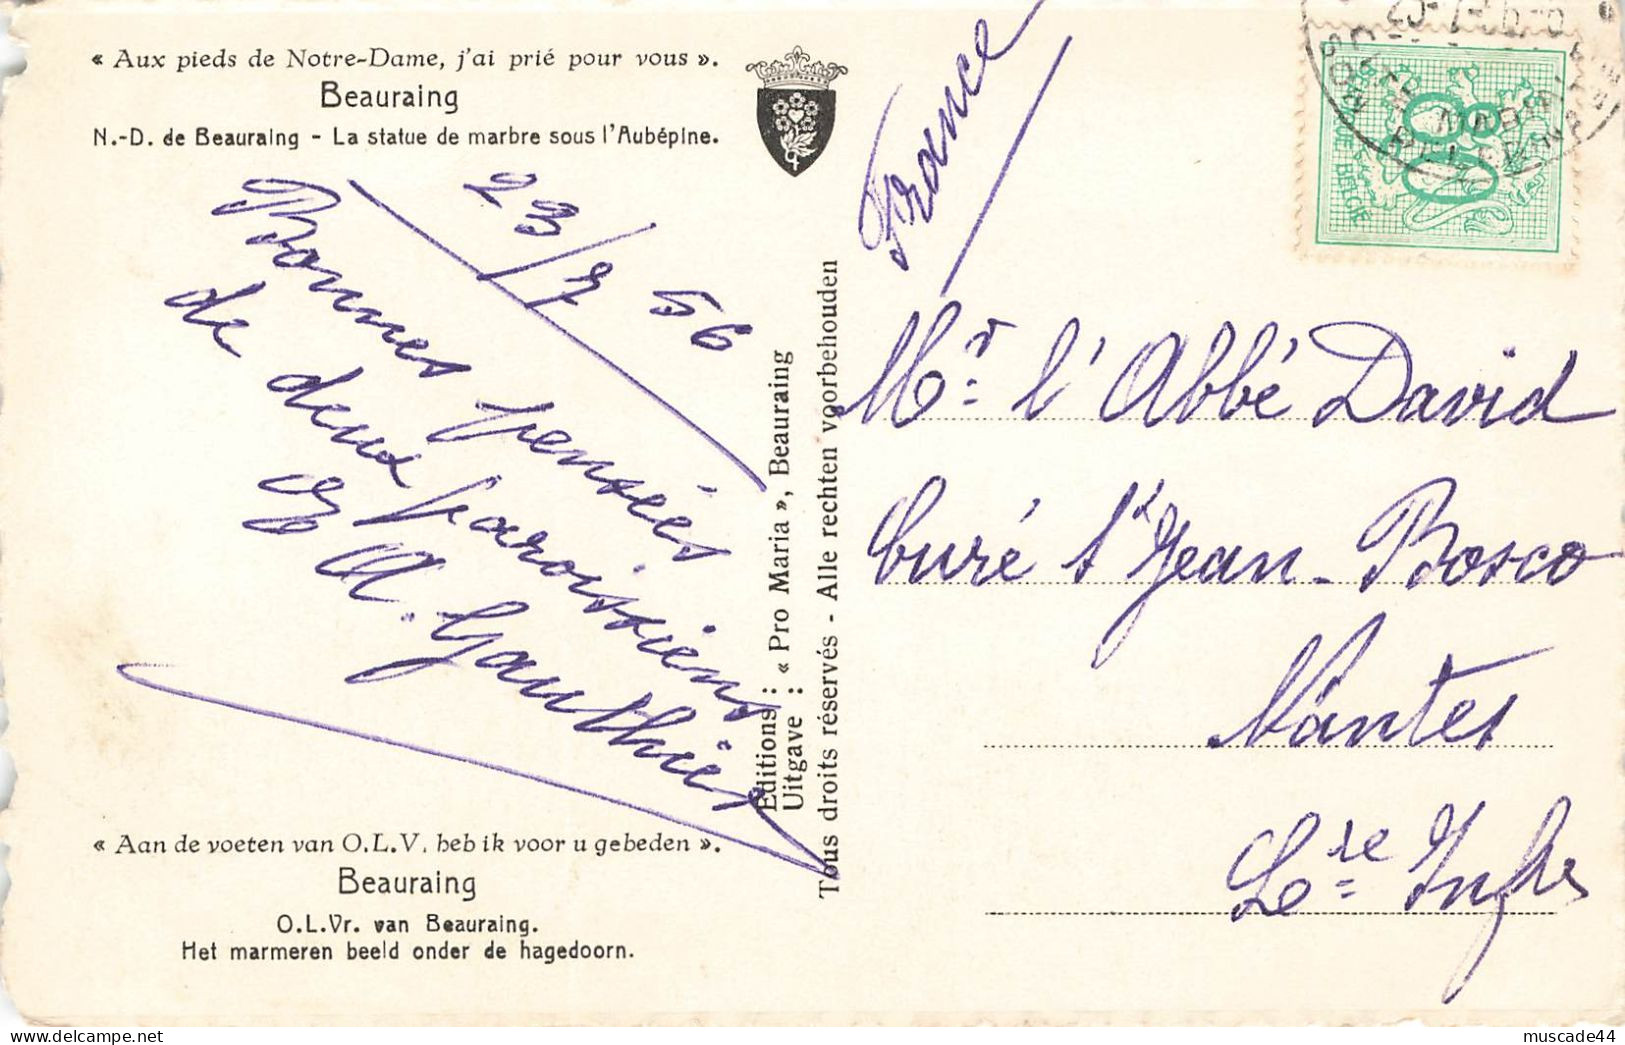 « Aux pieds de Notre-Dame, j'ai prié pour vous ».
Beauraing
N.-D. de Beauraing - La statue de marbre sous l'Aubépine.
23/7 56
Bonnes pensées
de deux paroissiens
A. Gauthier
« Aan de voeten van O.L.V. heb ik voor u gebeden ».
Beauraing
O.L.Vr. van Beauraing.
Het marmeren beeld onder de hagedoorn.
Editions : « Pro Maria », Beauraing
Uitgave :
Tous droits réservés - Alle rechten voorbehouden
France
BELGIE
Mr. l'Abbé David
Curé St Jean-Bosco
Nantes
Lre Infre
muscade44